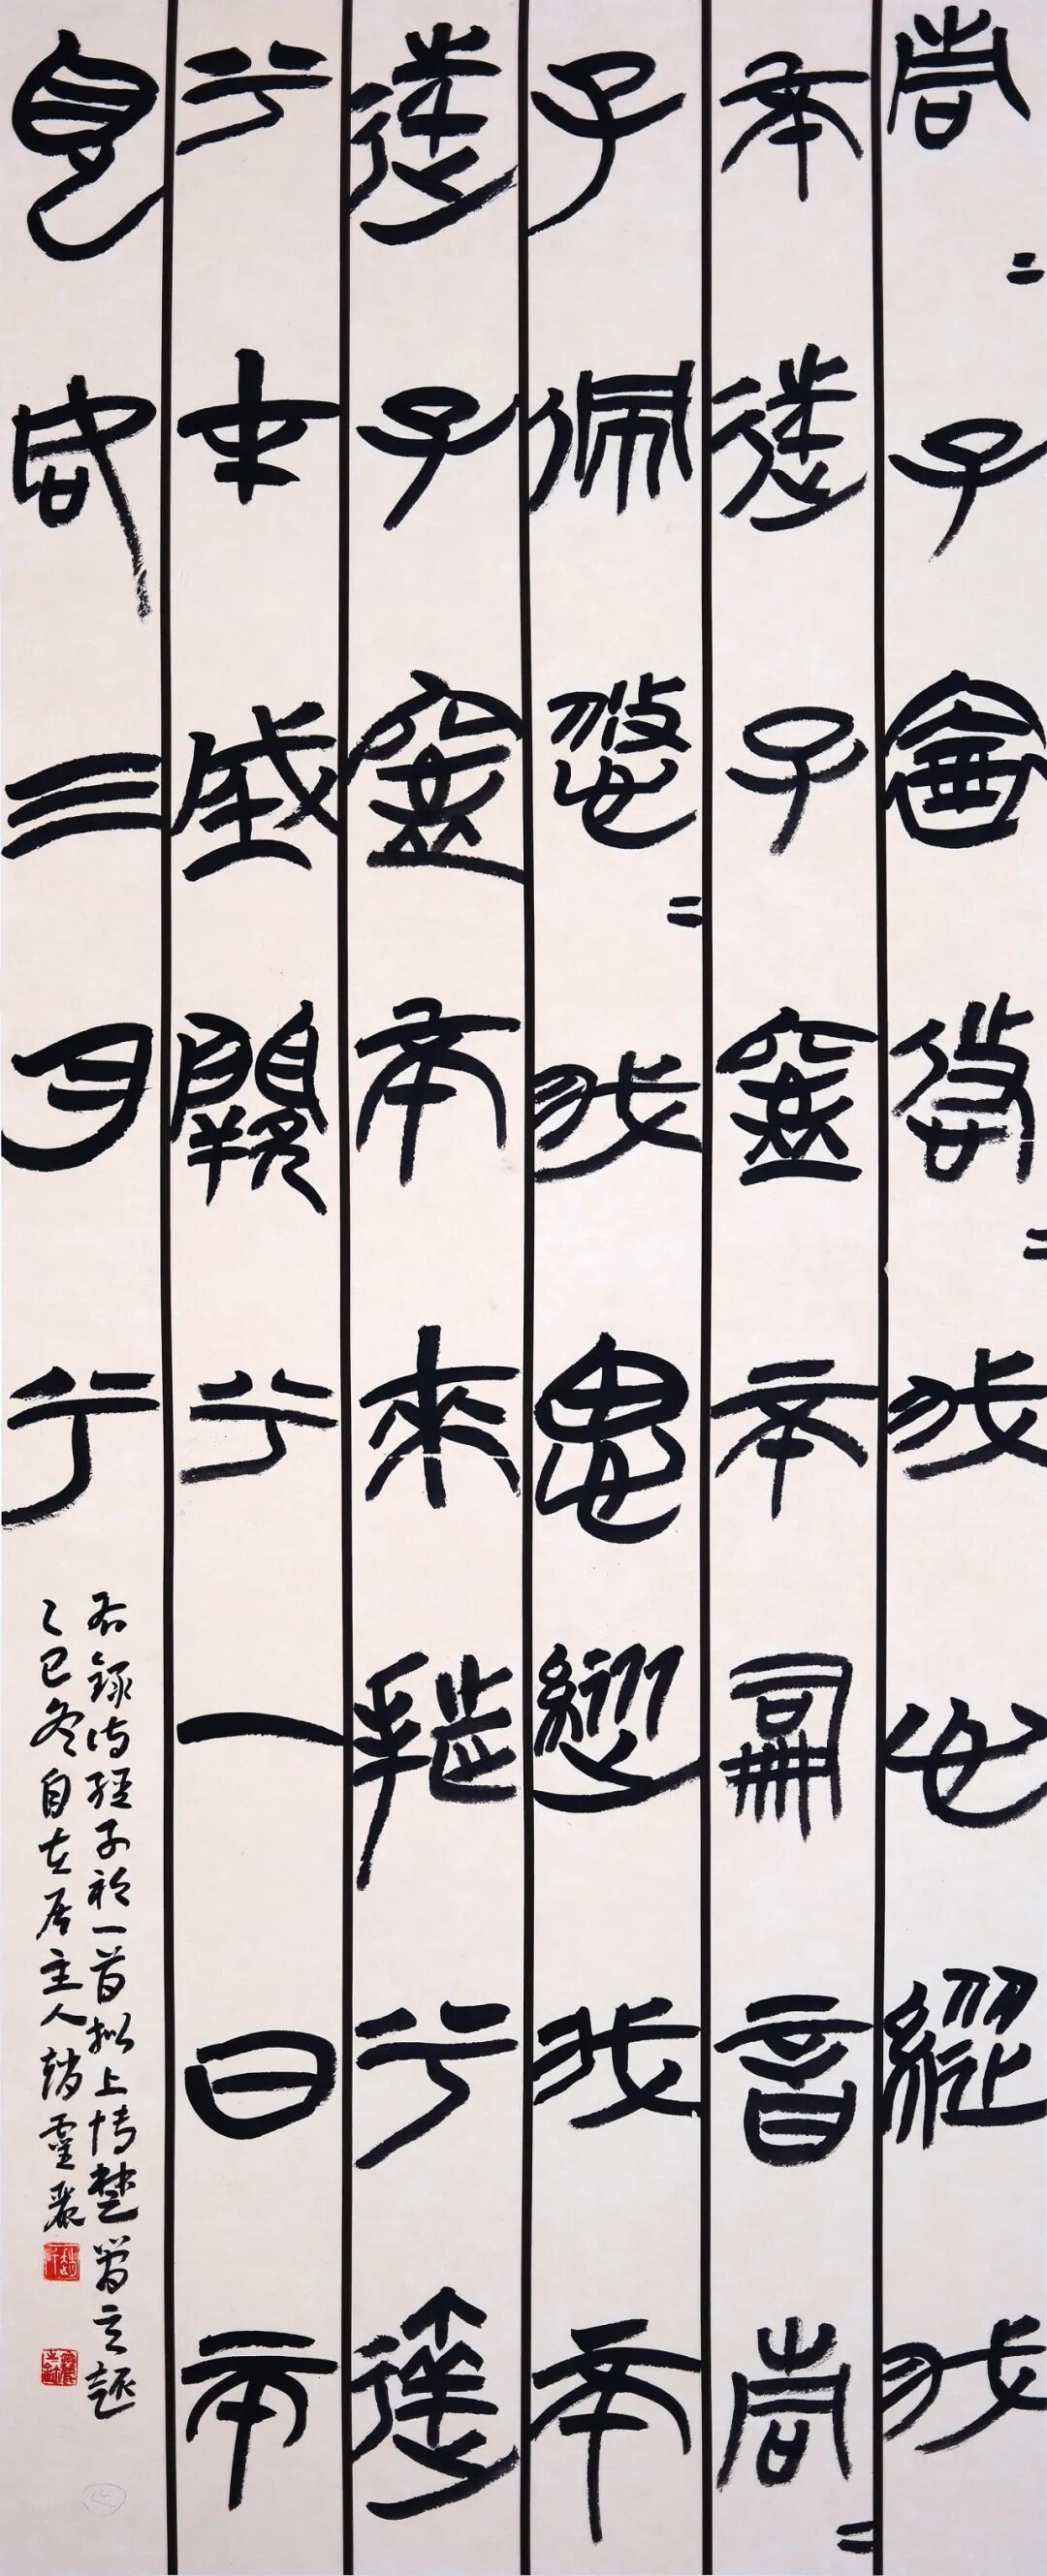 青=子衿悠=我心縱我
不往子寧不嗣音青=
子佩悠=我思縱我不
往子寧不來挑兮達
兮在城闕兮一日不
見如三月兮
右錄詩經子衿一首擬上博楚簡之趣
乙巳冬自在居主人趙靈